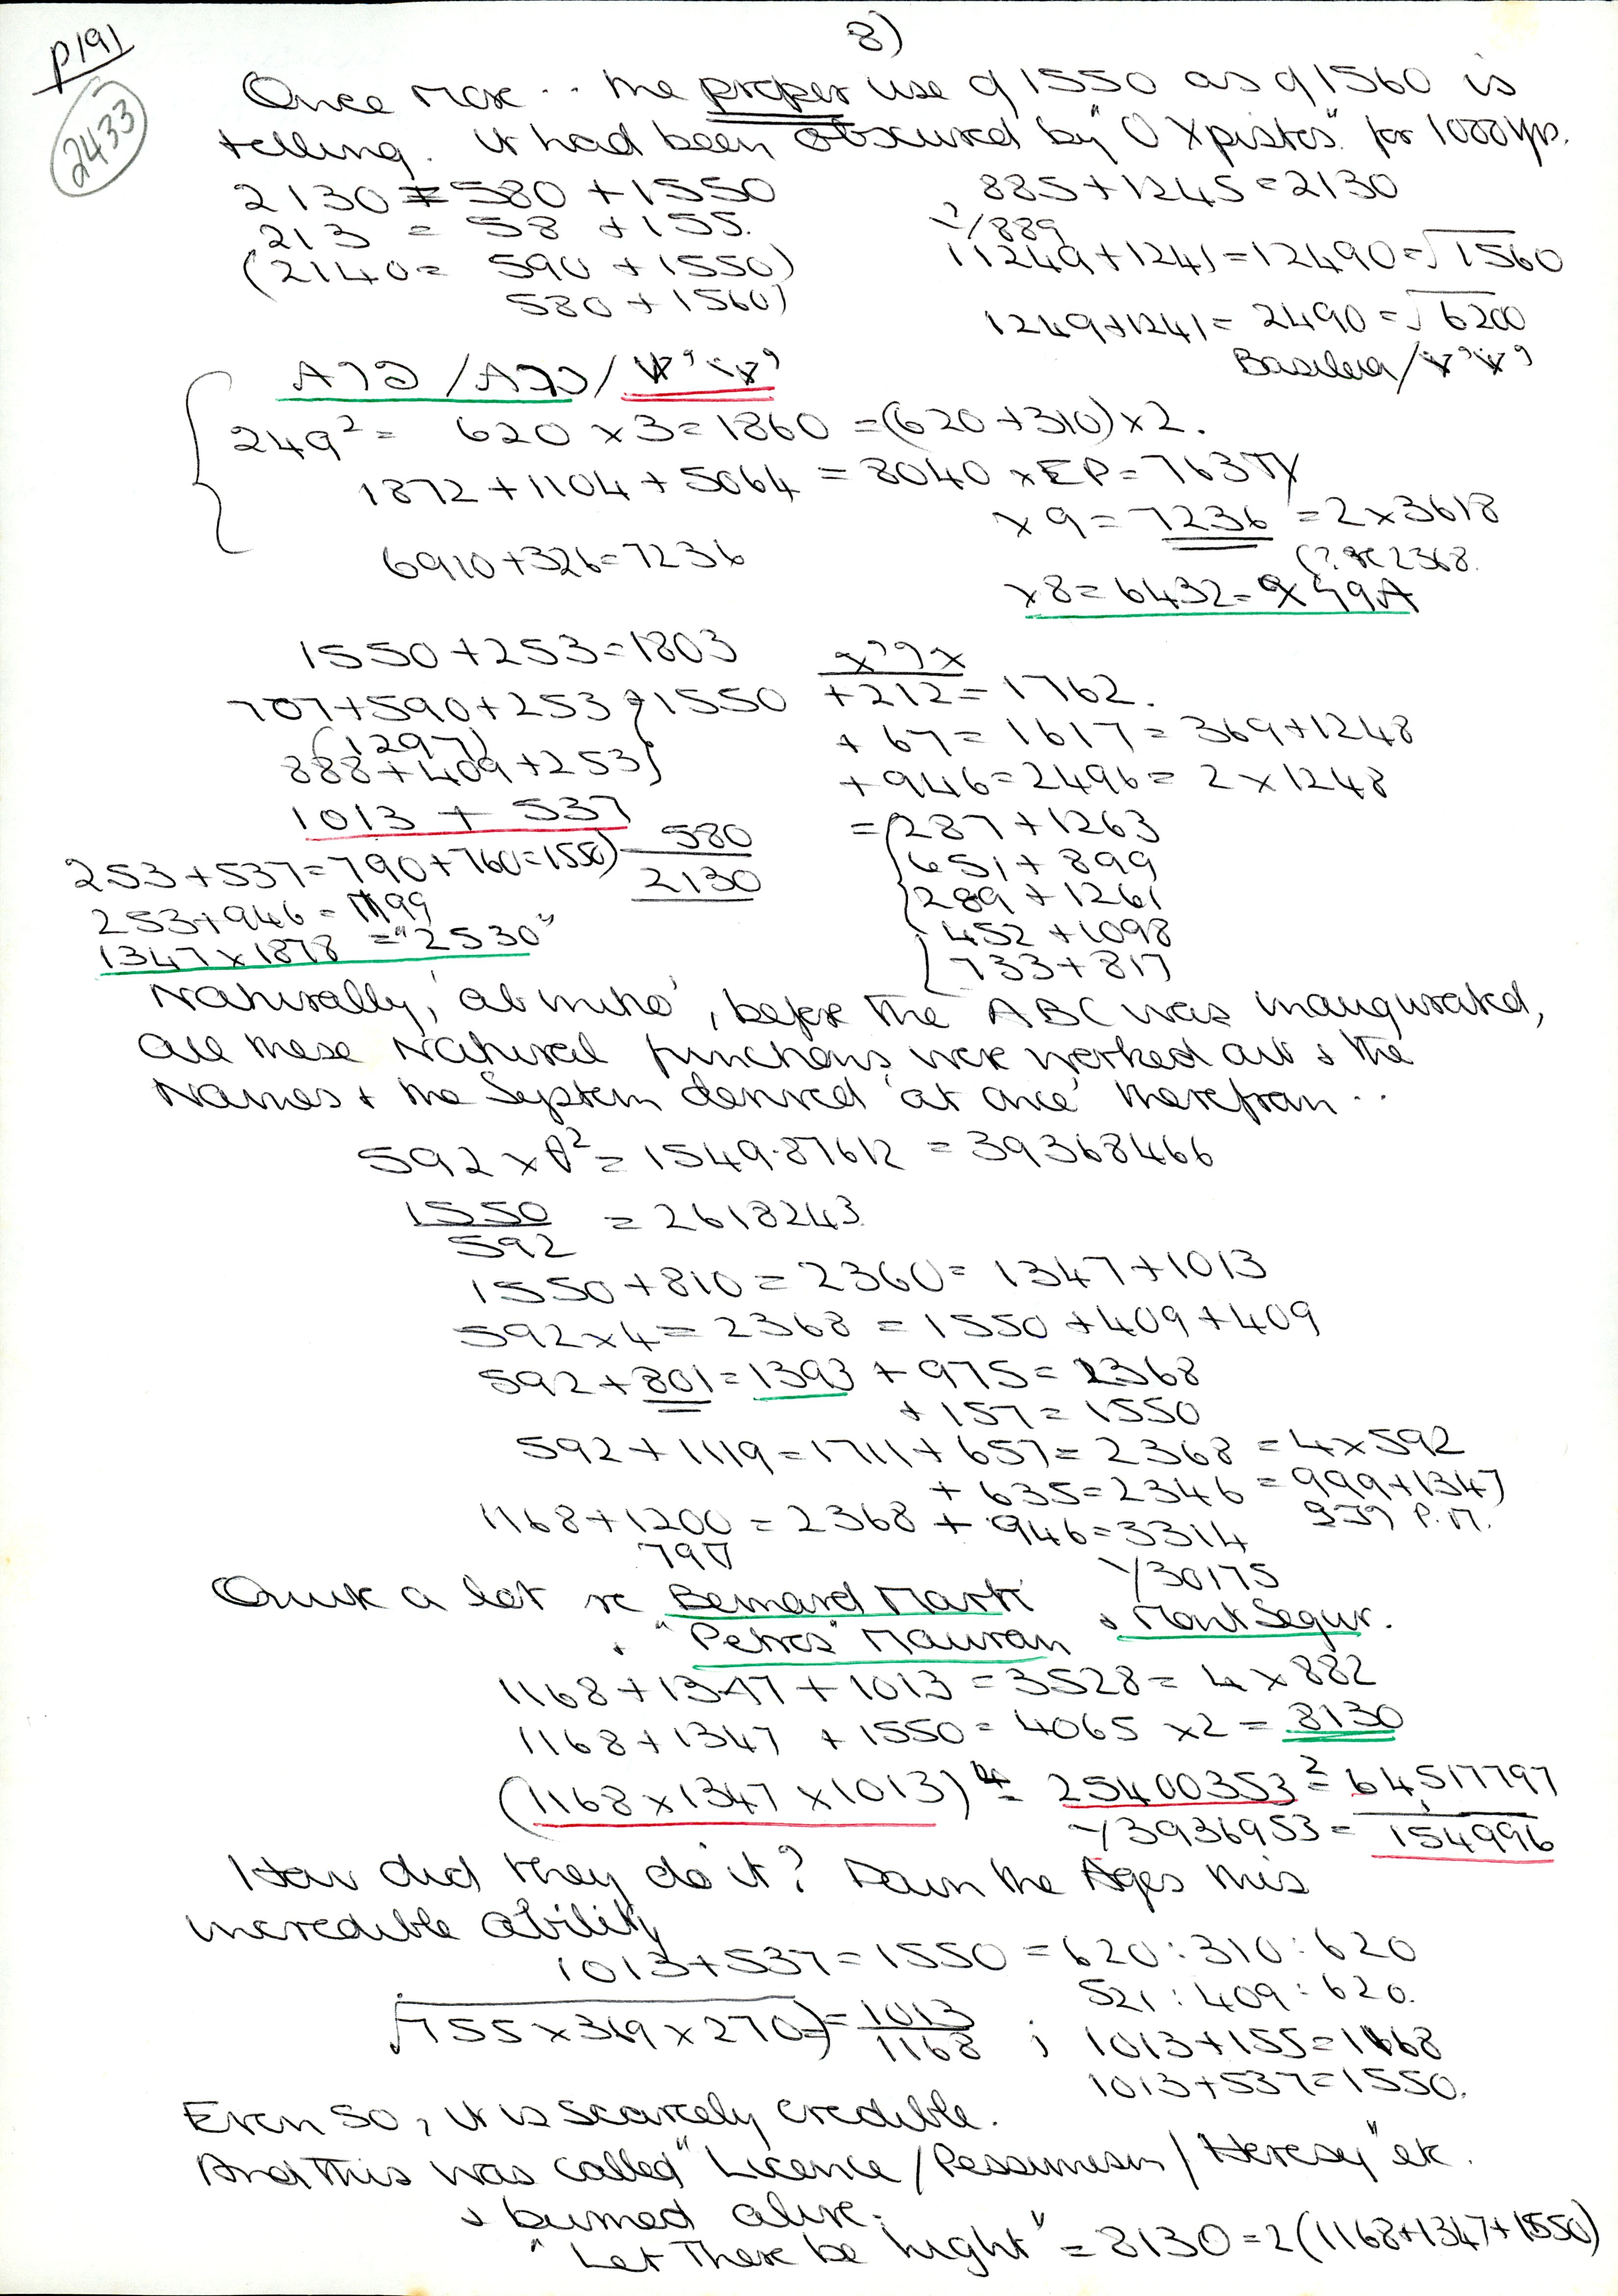 8)
p191
2433
Once more .. the proper use of 1550 as of 1560 is
telling. It had been obscured by "O Xpistos" for 1000 yrs.
2130 = 580 + 1550
213 = 58 + 155.
(2140 = 590 + 1550)
580 + 1560)
885 + 1245 = 2130
11249 + 1241 = 12490 = √1560
1249 + 1241 = 2490 = √6200
Basileia /
249² = 620 × 3 = 1860 = (620 + 310) × 2.
1872 + 1104 + 5064 = 8040 × EP = 763
× 9 = 7236 = 2 × 3618
(? re 2368.
6910 + 326 = 7236
× 8 = 6432 =
1550 + 253 = 1803
707 + 590 + 253 } 1550
(1297)
888 + 409 + 253 }
1013 + 537
253 + 537 = 790 + 760 = 1550)
580
2130
253 + 946 = 1199
1347 × 1878 = "2530"
+ 212 = 1762.
+ 67 = 1617 = 369 + 1248
+ 946 = 2496 = 2 × 1248
= { 287 + 1263
651 + 899
289 + 1261
452 + 1098
733 + 817
Naturally, 'ab initio', before the ABC was inaugurated,
all these Natural functions were worked out & the
Names & the System derived 'at once' therefrom ..
592 × θ² = 1549.87612 = 39368466
1550/592 = 2618243
1550 + 810 = 2360 = 1347 + 1013
592 × 4 = 2368 = 1550 + 409 + 409
592 + 801 = 1393 + 975 = 2368
+ 157 = 1550
592 + 1119 = 1711 + 657 = 2368 = 4 × 592
+ 635 = 2346 = 999 + 1347
P.M.
1168 + 1200 = 2368 + 946 = 3314
√30175
Quite a lot re Bernard Marti
& "Petros" Mauran & Mont Segur.
1168 + 1347 + 1013 = 3528 = 4 × 882
1168 + 1347 + 1550 = 4065 × 2 = 8130
(1168 × 1347 × 1013)⁴ = 25400353² = 64,517797
√3936953 = 154996
How did they do it? Down the Ages this
incredible ability
1013 + 537 = 1550 = 620 : 310 : 620
521 : 409 : 620.
√755 × 369 × 270 = 1013/1168 ; 1013 + 155 = 1168
1013 + 537 = 1550.
Even so, it is scarcely credible.
And this was called "Licence / Pessimism / Heresy" etc.
& burned alive.
"Let There be Light" = 8130 = 2(1168 + 1347 + 1550)